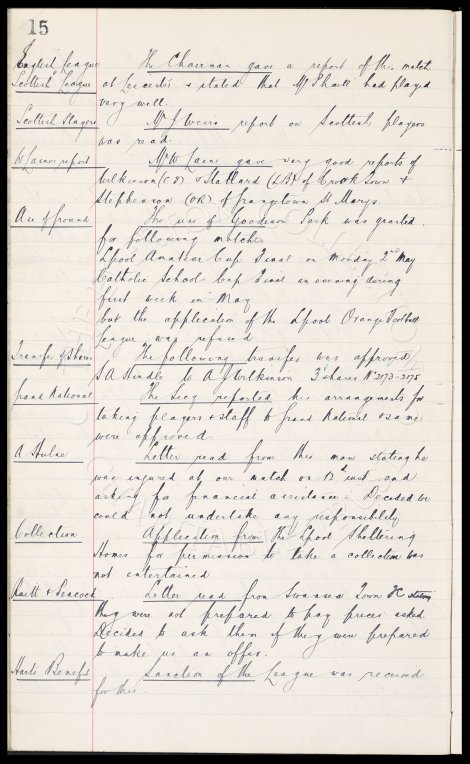 15
English League
Scottish League
The Chairman gave a report of this match
at Leicester & stated that Mr had played
very well.
Scottish Players
Mr J Weirs report on Scottish players
was read.
W Laines report
Mr W Laine gave very good reports of
Wilkinson (CF) & Stallard (LB) of Crook Town &
Stephenson (OR) of Grangetown St Marys.
Use of Ground
The use of Goodison Park was granted
for following matches
Lpool Amateur Cup Final on Monday 2nd May
Catholic Schools Cup Final an evening during
first week in May
but the application of the Lpool Orange Football
League was refused
Transfer of Shares
The following transfer was approved
S A to A J Wilkinson 3 shares No 2173-2175
Grand National
The Secy reported his arrangements for
taking players & staff to Grand National & same
were approved.
A Hulse
Letter read from this man stating he
was injured at our match on 12th inst and
asking for financial assistance. Decided we
could not undertake any responsibility
Collection
Application from the Lpool Sheltering
Homes for permission to take a collection was
not entertained
Raitt & Peacock
Letter read from Swansea Town FC stating
they were not prepared to pay prices asked.
Decided to ask them if they were prepared
to make us an offer.
Harts Benefit
Sanction of the League was received
for this.